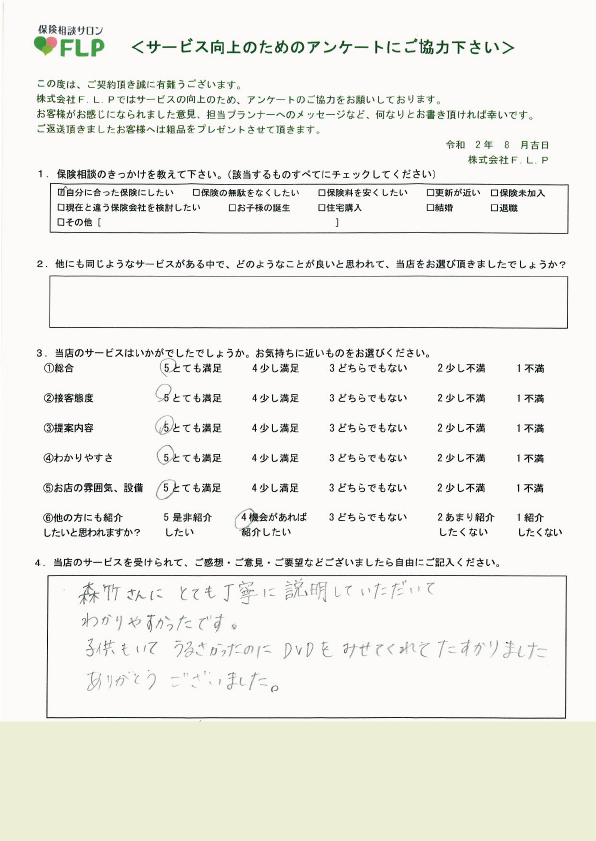 保険相談サロン
FLP
＜サービス向上のためのアンケートにご協力下さい＞
この度は、ご契約頂き誠に有難うございます。
株式会社Ｆ.Ｌ.Ｐではサービスの向上のため、アンケートのご協力をお願いしております。
お客様がお感じになられました意見、担当プランナーへのメッセージなど、何なりとお書き頂ければ幸いです。
ご返送頂きましたお客様へは粗品をプレゼントさせて頂きます。
令和 2年 8 月吉日
株式会社Ｆ.Ｌ.Ｐ
１．保険相談のきっかけを教えて下さい。（該当するものすべてにチェックしてください）
☑自分に合った保険にしたい □保険の無駄をなくしたい □保険料を安くしたい □更新が近い □保険未加入
□現在と違う保険会社を検討したい □お子様の誕生 □住宅購入 □結婚 □退職
□その他［ ］
２．他にも同じようなサービスがある中で、どのようなことが良いと思われて、当店をお選び頂きましたでしょうか？
３．当店のサービスはいかがでしたでしょうか。お気持ちに近いものをお選びください。
①総合 5とても満足 4少し満足 3どちらでもない 2少し不満 1不満
②接客態度 5とても満足 4少し満足 3どちらでもない 2少し不満 1不満
③提案内容 5とても満足 4少し満足 3どちらでもない 2少し不満 1不満
④わかりやすさ 5とても満足 4少し満足 3どちらでもない 2少し不満 1不満
⑤お店の雰囲気、設備 5とても満足 4少し満足 3どちらでもない 2少し不満 1不満
⑥他の方にも紹介 5是非紹介 4機会があれば 3どちらでもない 2あまり紹介 1紹介
したいと思われますか？ したい 紹介したい したくない したくない
４．当店のサービスを受けられて、ご感想・ご意見・ご要望などございましたら自由にご記入ください。
森竹さんに とても丁寧に説明していただいて
わかりやすかったです。
子供もいて うるさかったのに DVDを みせてくれて たすかりました
ありがとう ございました。